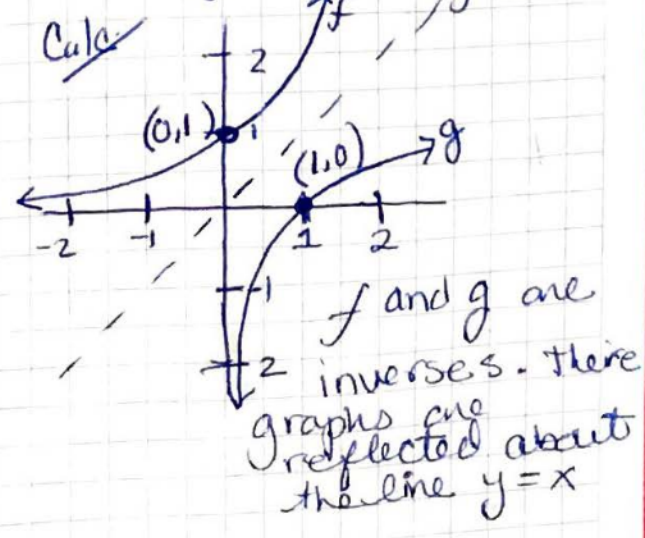 Calc
f
y
2
(0,1)
1
(1,0)
g
-2 -1 1 2
-1
-2
f and g are
inverses. There
graphs are
reflected about
the line y = x